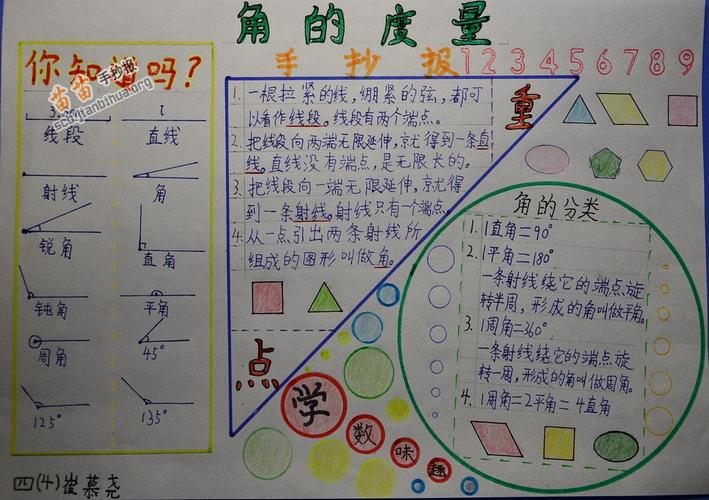 角的度量
手抄报
1 2 3 4 5 6 7 8 9
你知道吗？
苗苗手抄报
shoujiantuhua.org
线段
l
直线
射线
角
锐角
直角
钝角
平角
周角
45°
125°
135°
1. 一根拉紧的线，绷紧的弦，都可
以看作线段。线段有两个端点。
2. 把线段向两端无限延伸，就得到一条直
线。直线没有端点，是无限长的。
3. 把线段向一端无限延伸，就得
到一条射线。射线只有个端点。
4. 从一点引出两条射线所
组成的图形叫做角。
重
点
角的分类
1. 1直角=90°
2. 1平角=180°
一条射线绕它的端点旋
转半周，形成的角叫做平角。
3. 1周角=360°
一条射线绕它的端点旋
转一周，形成的角叫做周角。
4. 1周角=2平角=4直角
学
数
味
趣
四(4)崔慕尧